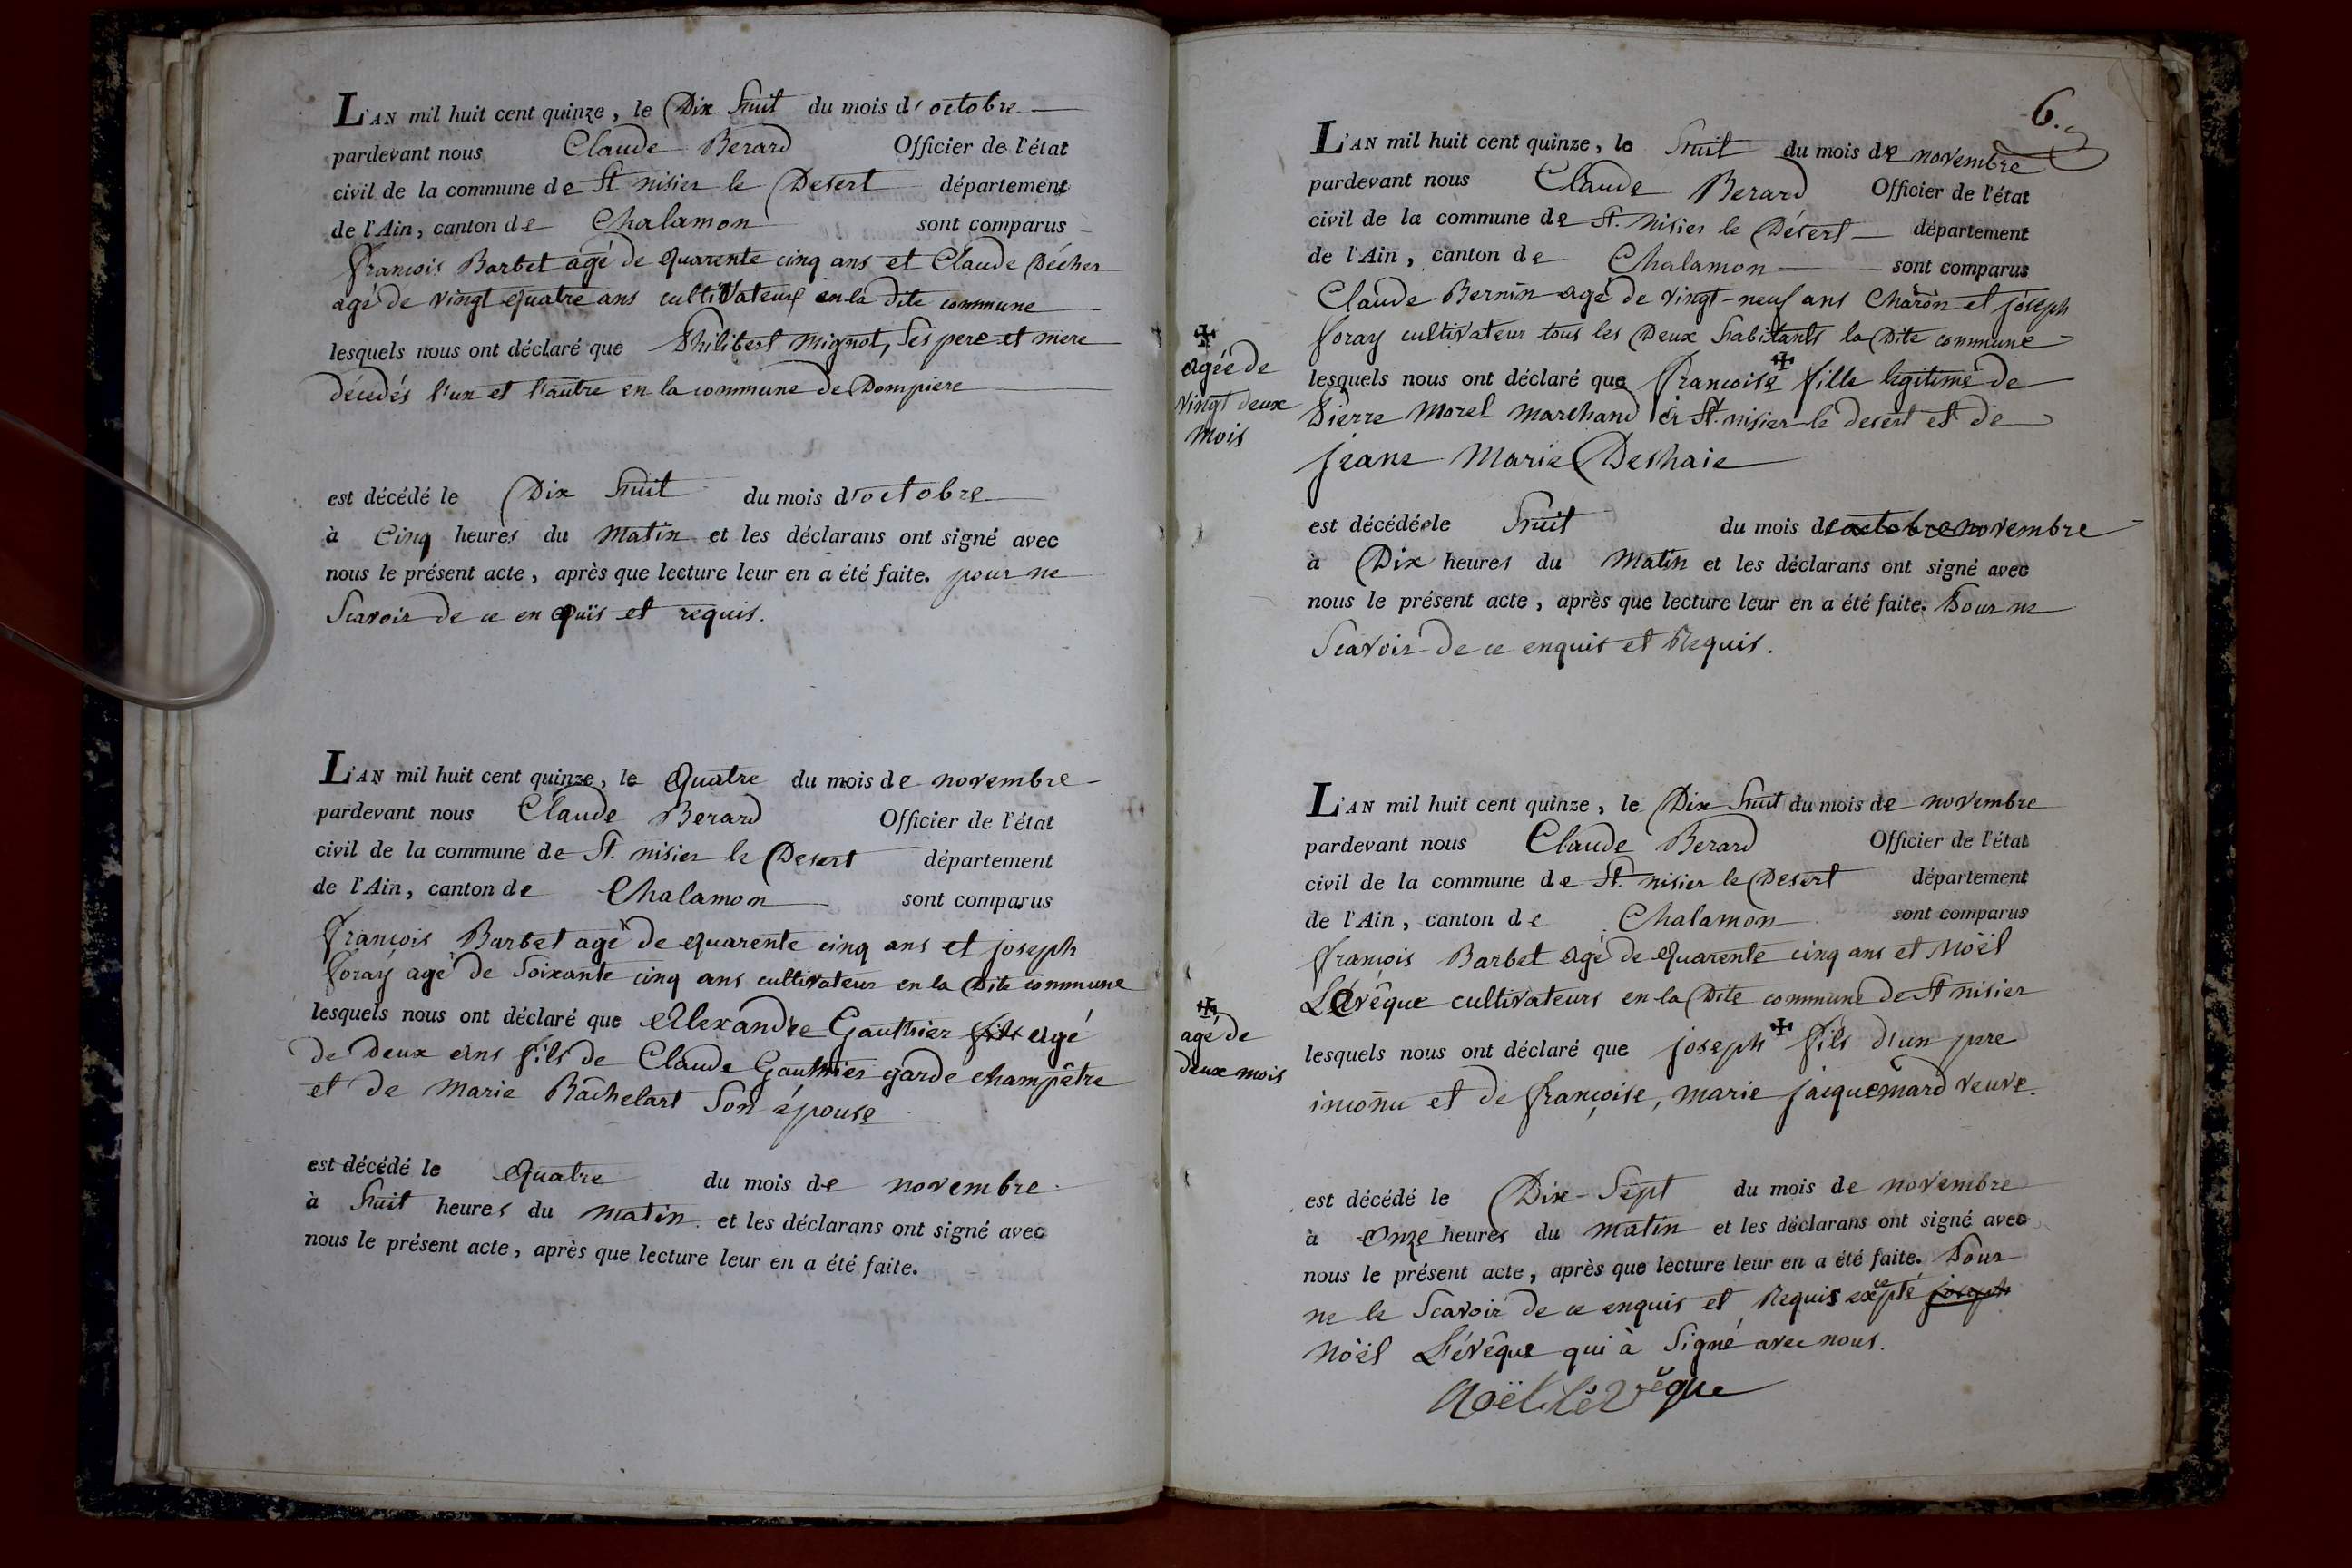 L'AN mil huit cent quinze, le Dix huit du mois d'octobre
pardevant nous Claude Berard Officier de l'état
civil de la commune de St nisier le Desert département
de l'Ain, canton de Chalamon sont comparus
françois Barbet agé de quarente cinq ans et Claude Décher
agé de vingt quatre ans cultivateurs en la dite commune
lesquels nous ont déclaré que Philibert mignot, ses pere et mere
décédés l'un et l'autre en la commune de Dompiere
est décédé le Dix huit du mois d'octobre
à Cinq heures du matin et les déclarans ont signé avec
nous le présent acte, après que lecture leur en a été faite. pour ne
Scavoir de ce en quis et requis.
L'AN mil huit cent quinze, le quatre du mois de novembre
pardevant nous Claude Berard Officier de l'état
civil de la commune de St. nisier le Desert département
de l'Ain, canton de Chalamon sont comparus
françois Barbet agé de quarente cinq ans et joseph
foray agé de Soixante cinq ans cultivateur en la Dite commune
lesquels nous ont déclaré que Alexandre Gauthier fils agé
de deux ans fils de Claude Gauthier garde champêtre
et de marie Bâchelart Son épouse
est décédé le quatre du mois de novembre
à huit heures du matin et les déclarans ont signé avec
nous le présent acte, après que lecture leur en a été faite.
6.
L'AN mil huit cent quinze, le huit du mois de novembre
pardevant nous Claude Berard Officier de l'état
civil de la commune de St. nisier le Désert département
de l'Ain, canton de Chalamon sont comparus
Claude Bernin agé de vingt-neuf ans Charon et joseph
foray cultivateur tous les Deux habitants la Dite commune
lesquels nous ont déclaré que françoise ✠ fille legitime de
Pierre morel marchand à St. nisier le desert et de
jeane Marie Deshaie
✠
agée de
vingt deux
mois
est décédée le huit du mois de octobre novembre
à Dix heures du matin et les déclarans ont signé avec
nous le présent acte, après que lecture leur en a été faite. Pour ne
Scavoir de ce enquis et Requis.
L'AN mil huit cent quinze, le Dix huit du mois de novembre
pardevant nous Claude Berard Officier de l'état
civil de la commune de St. nisier le Desert département
de l'Ain, canton de Chalamon sont comparus
françois Barbet agé de quarente cinq ans et Noël
Lévêque cultivateurs en la Dite commune de St nisier
lesquels nous ont déclaré que joseph ✠ fils d'un pere
inconnu et de françoise, marie jacquemard veuve.
✠
agé de
deux mois
est décédé le Dix-Sept du mois de novembre
à Onze heures du matin et les déclarans ont signé avec
nous le présent acte, après que lecture leur en a été faite. Pour
ne le Scavoir de ce enquis et Requis excepté joseph
Noël L'évêque qui à Signé avec nous.
Noël lévêque